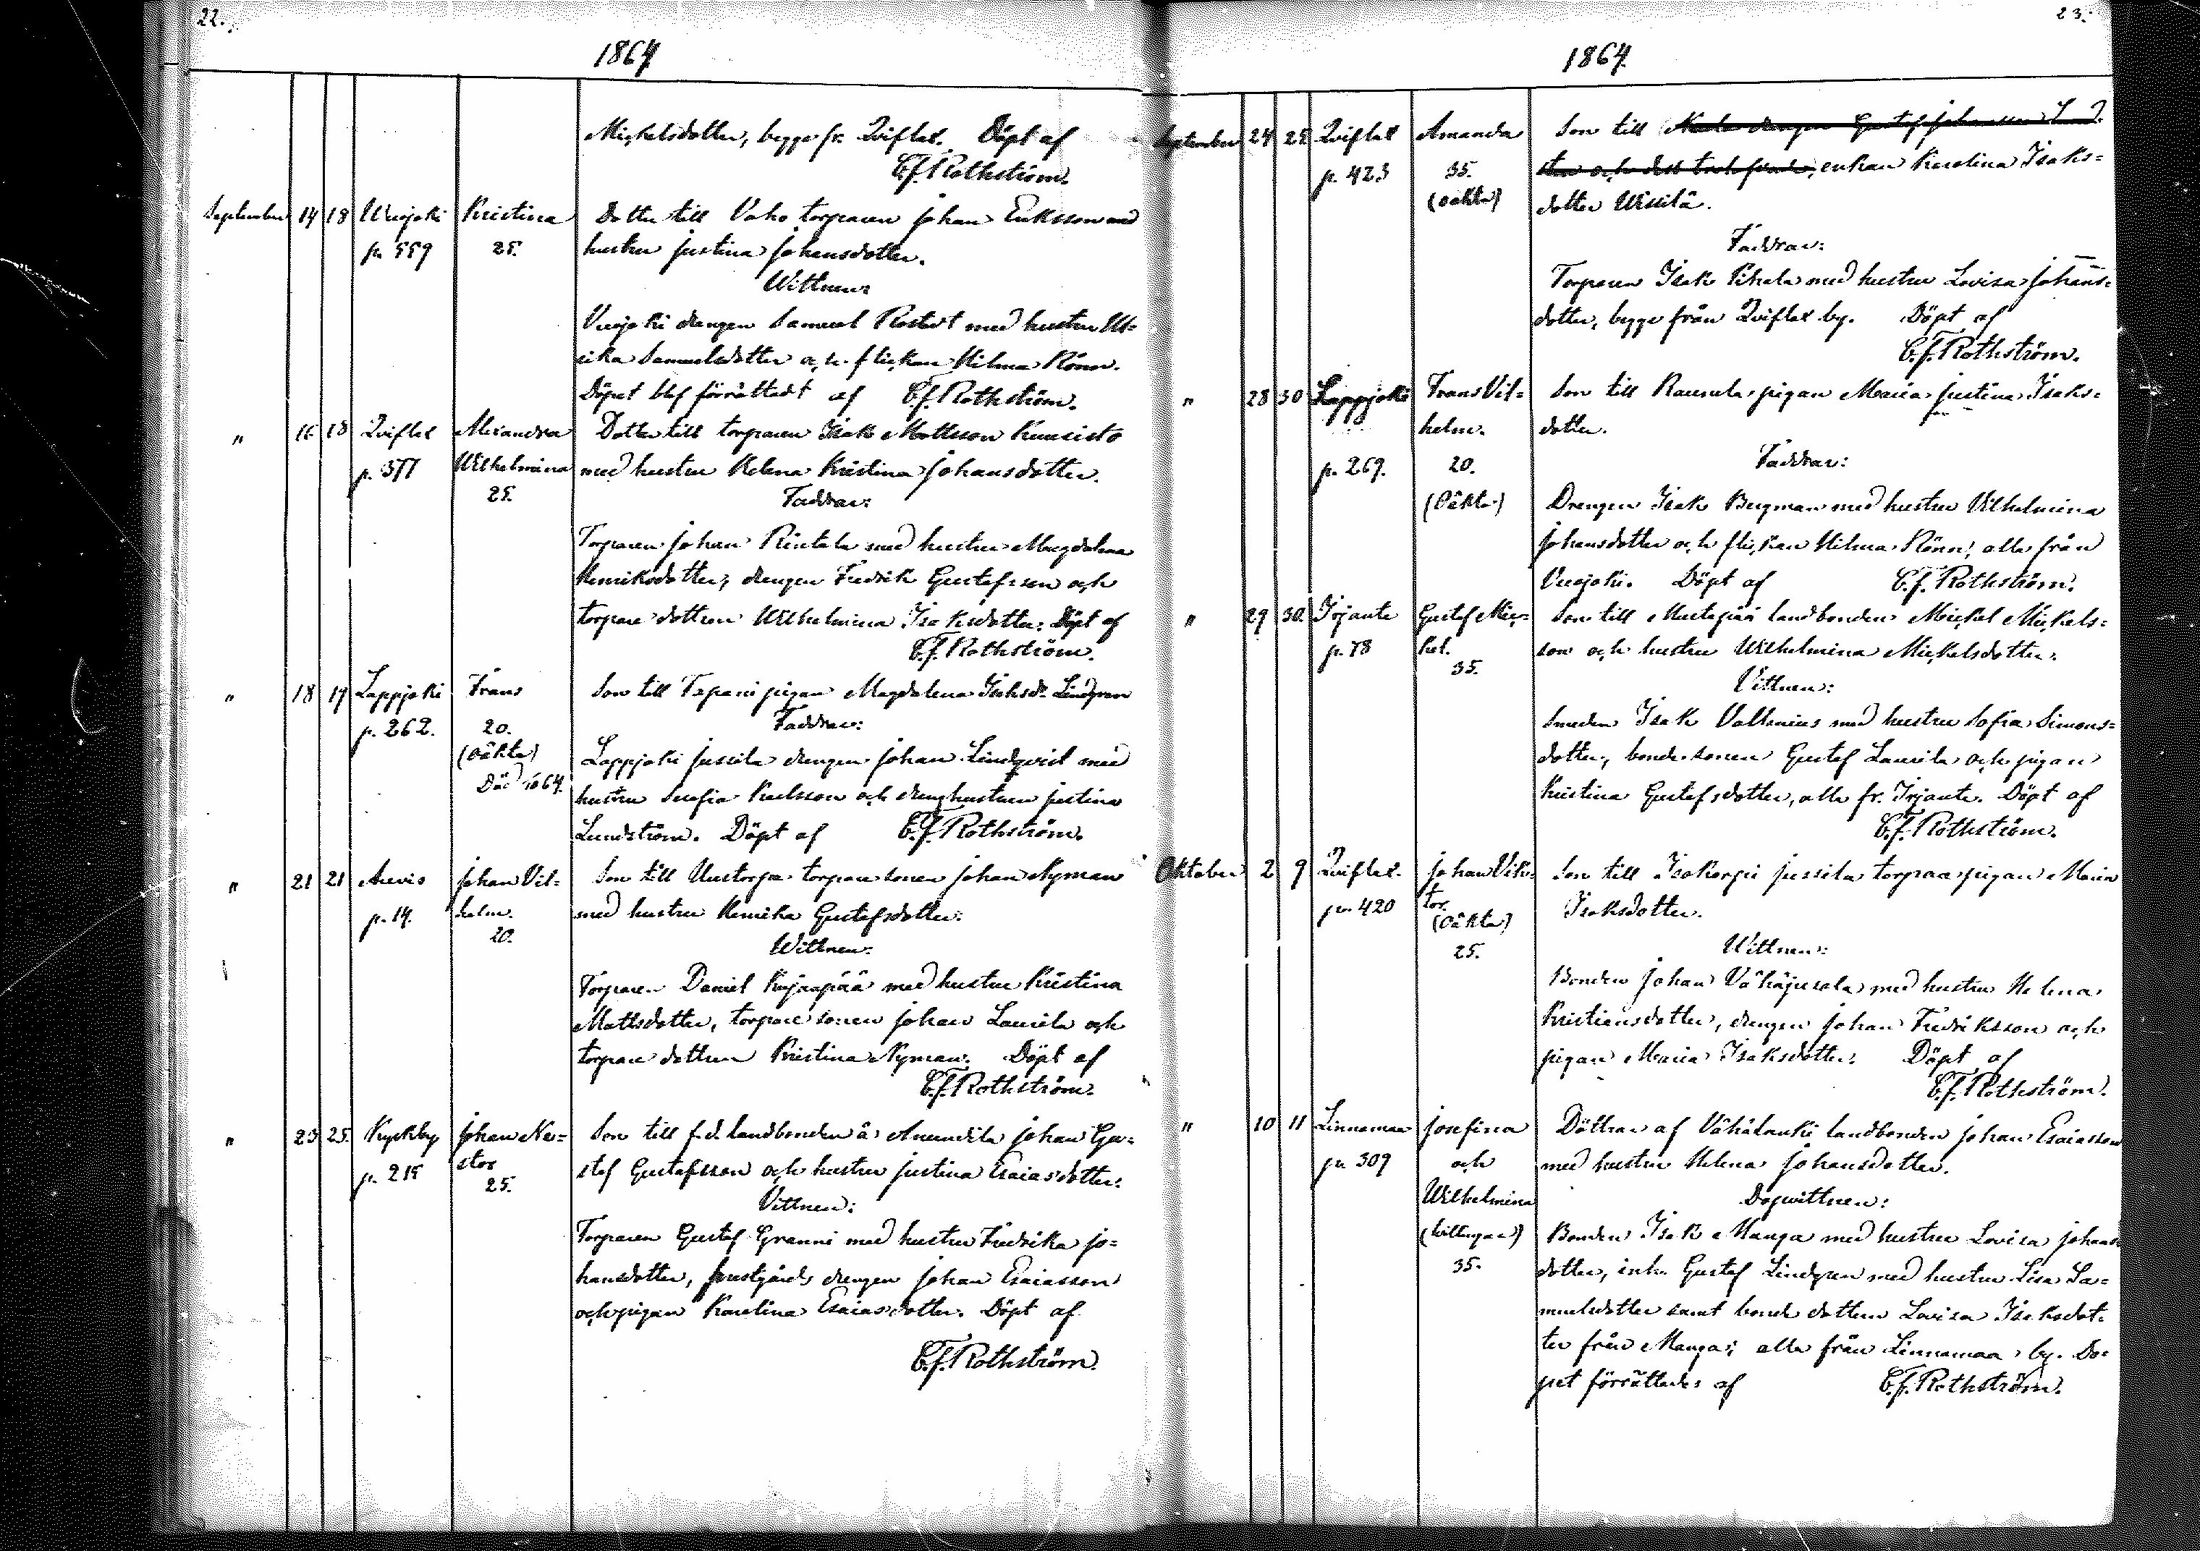 22.
1864
Mickelsdotter, begge fr. Qviflax. Döpt af
C.f. Rothström.
September 14 18 Vuojoki Kristina Dotter till Vaho torparen Johan Eriksson med
p. 559 25. hustru Justina Johansdotter.
Wittnen:
Vuojoki drengen Samuel Rostedt med hustru Ul=
rika Samuelsdotter och flickan Hilma Rönn.
Döpet blef förrättadt af C.f. Rothström.
" 16 18 Qviflax Alexandra Dotter till torparen Isak Mattsson Kuusisto
p. 377 Wilhelmina med hustru Helena Kristina Johansdotter.
25. Faddrar:
Torparen Johan Rintala med hustru Magdalena
Henriksdotter; drengen Fredrik Gustafsson och
torpare dottren Wilhelmina Isaksdotter. Döpt af
C.f. Rothström.
" 18 19 Lappjoki Frans Son till Tapani pigan Magdalena Isaksdr Lindgren
p. 262. 20. Faddrar:
(oäkta) Lappjoki Jussila drengen Johan Lindqvist med
Död 1864. hustru Serafia Karlsson och dreng hustrun Justina
Lundström. Döpt af C.f. Rothström.
" 21 21 Auvis Johan Vil= Son till Uustorpa torpare sonen Johan Nyman
p. 14. helm. med hustru Henrika Gustafsdotter.
20. Wittnen:
Torparen Daniel Kujanpää med hustru Kristina
Mattsdotter, torpare sonen Johan Laurila och
torpare dottren Kristina Nyman. Döpt af
C.f. Rothström.
" 23 25. Kyrkby Johan Nes= Son till f.d. landbonden å Anundila Johan Gu=
p. 215 tor staf Gustafsson och hustru Justina Esaiasdotter.
25. Vittnen:
Torparen Gustaf Granni med hustru Fredrika Jo=
hansdotter, prestgårds drengen Johan Esaiasson
och pigan Karolina Esaiasdotter. Döpt af
C.f. Rothström.
23.
1864.
September 24 25 Qviflax Amanda Son till
p. 423 35. enkan Karolina Isaks=
(oäkta) dotter Ussitä.
Faddrar:
Torparen Isak Pihala med hustru Lovisa Johans=
dotter, begge från Qviflax by. Döpt af
C.f. Rothström.
" 28 30 Lappjoki Frans Vil= Son till Raumula pigan Maria Justina Isaks=
helm. dotter.
p. 269. 20. Faddrar:
(Oäkta) Drengen Isak Bergman med hustru Vilhelmina
Johansdotter och flickan Hilma Rönn, alla från
Vuojoki. Döpt af C.f. Rothström.
" 29 30. Irjante Gustaf Mic= Son till Mustapää landbonden Mickel Mickels=
p. 78 kel. son och hustru Wilhelmina Mickelsdotter.
35. Vittnen:
Smeden Isak Valtonius med hustru Sofia Simons=
dotter, bonde sonen Gustaf Laurila och pigan
Kristina Gustafsdotter, alla fr. Irjante. Döpt af
C.f. Rothström.
Oktober 2 9 Qviflax. Johan Vik= Son till Isokarpi Jussila torpare pigan Maria
p. 420 tor. Isaksdotter.
(Oäkta)
25. Wittnen:
Bonden Johan Vähäjusola med hustru Helena
Kristiansdotter, drengen Johan Fredriksson och
pigan Maria Isaksdotter. Döpt af
C.f. Rothström.
" 10 11 Linnamaa Josefina Döttrar af Vähälauki landbonden Johan Esaiasson
p. 309 och med hustru Helena Johansdotter.
Wilhelmina Dopvittnen:
(tvillingar) Bonden Isak Manga med hustru Lovisa Johans
35. dotter, inh. Gustaf Lindgren med hustru Lisa Sa=
muelsdotter samt bonde dottren Lovisa Isaksdot=
ter från Manga; alla från Linnamaa by. Do=
pet förrättades af C.f. Rothström.